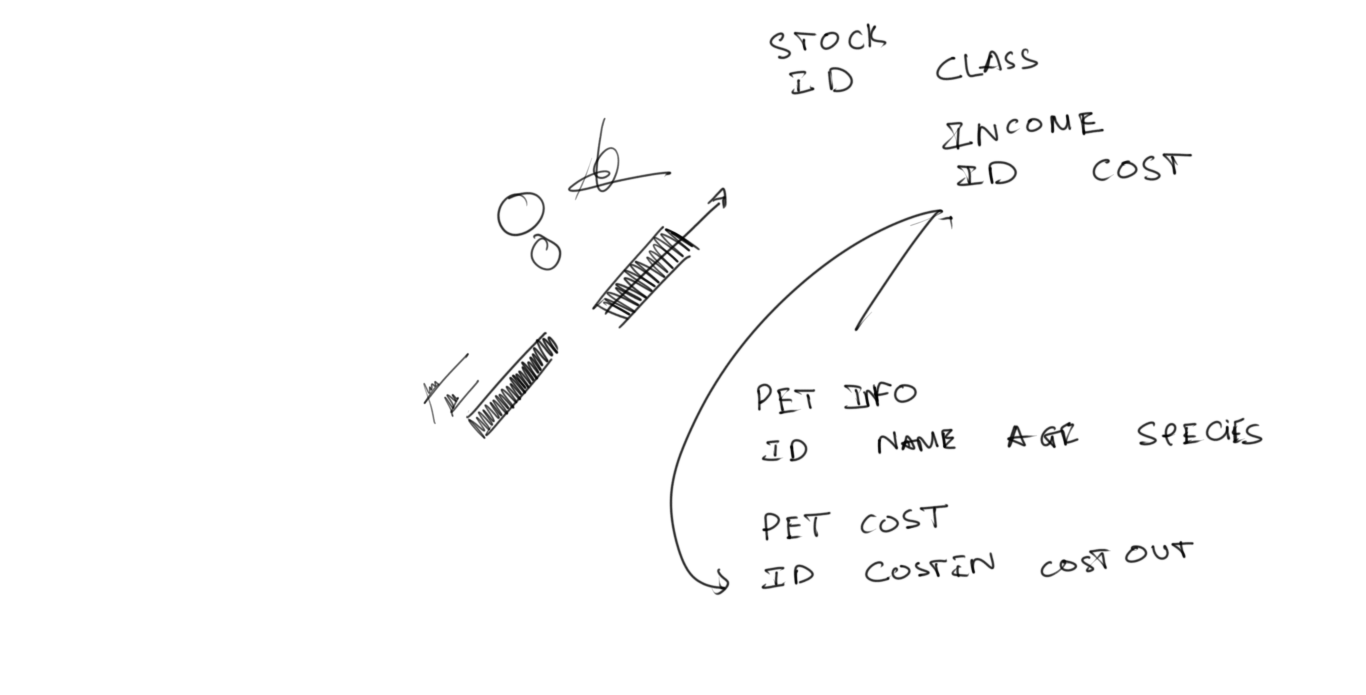 STOCK
ID CLASS
INCOME
ID COST
PET INFO
ID NAME AGE SPECIES
PET COST
ID COSTIN COST OUT